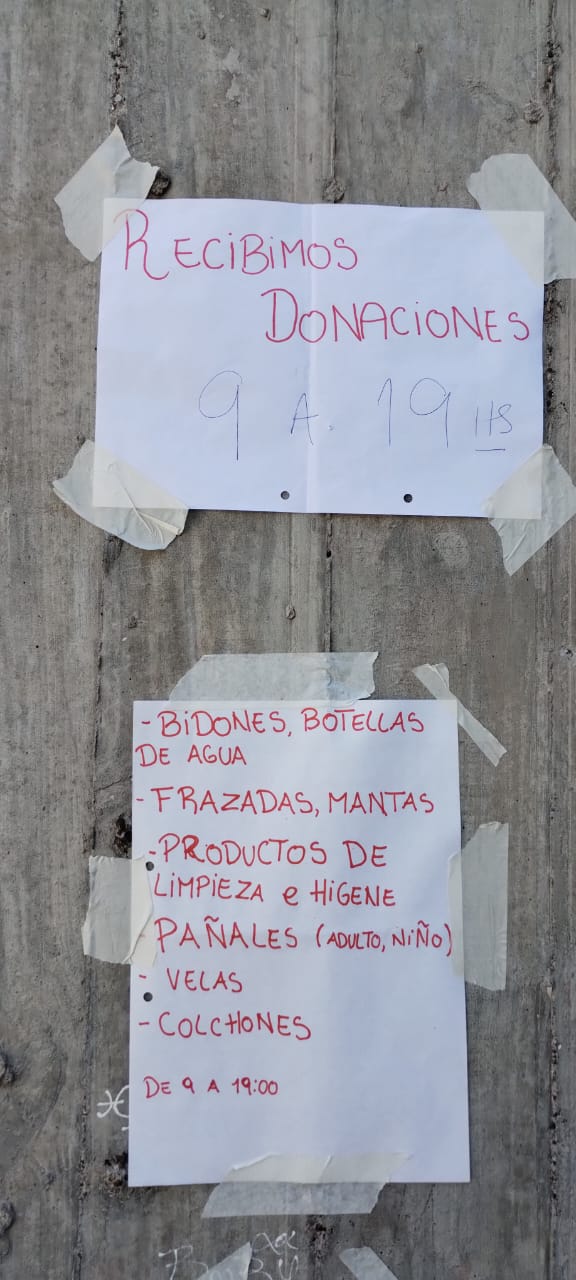 RECIBIMOS
DONACIONES
9 A. 19 HS
- BIDONES, BOTELLAS
DE AGUA
- FRAZADAS, MANTAS
- PRODUCTOS DE
LIMPIEZA e HIGENE
- PAÑALES (ADULTO, NIÑO)
- VELAS
- COLCHONES
DE 9 A 19:00